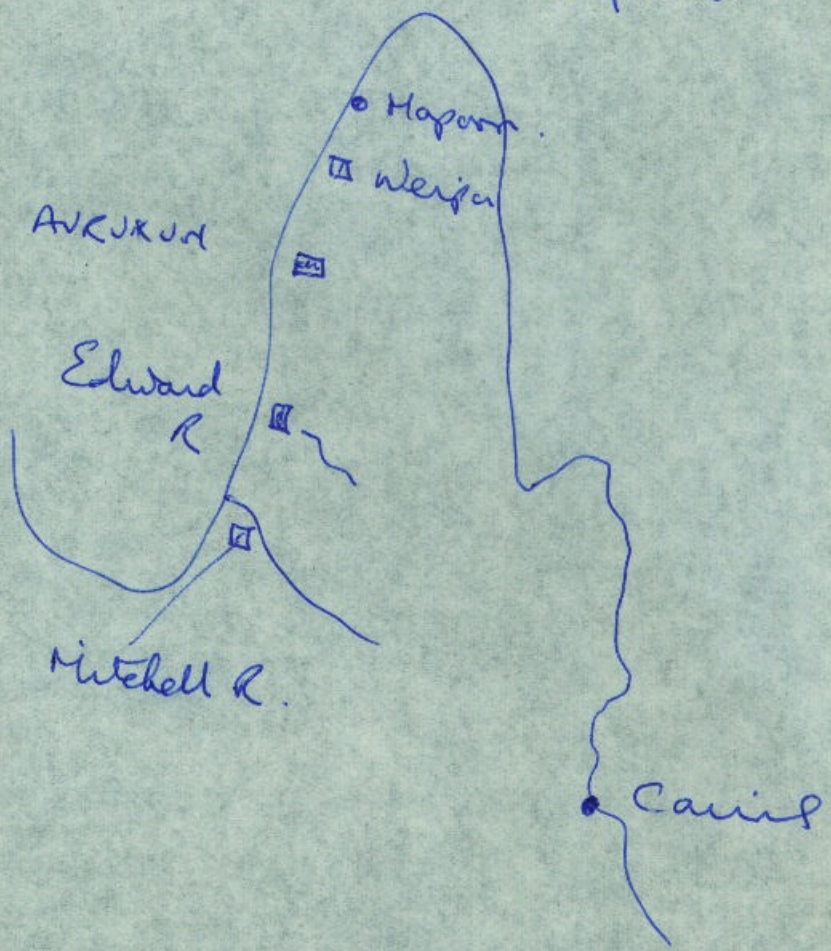 Mapoon.
Weipa
AURUKUN
Edward
R
Mitchell R.
Cairns